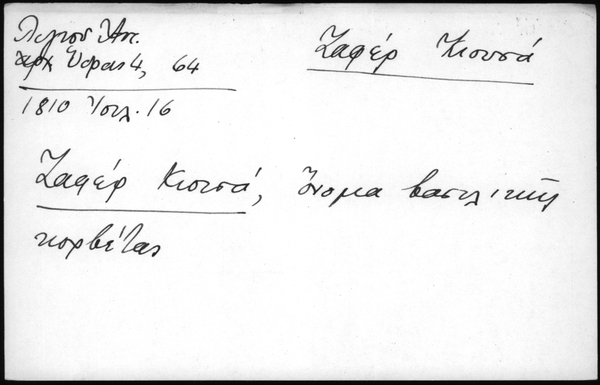 Λιγνοῦ Ἀντ.
Ἀρχ. Ὕδρας 4, 64
1810 Ἰουλ. 16
Ζαφέρ Κιουσά
Ζαφέρ Κιουσά, ὄνομα βασιλικῆς
κορβέτας